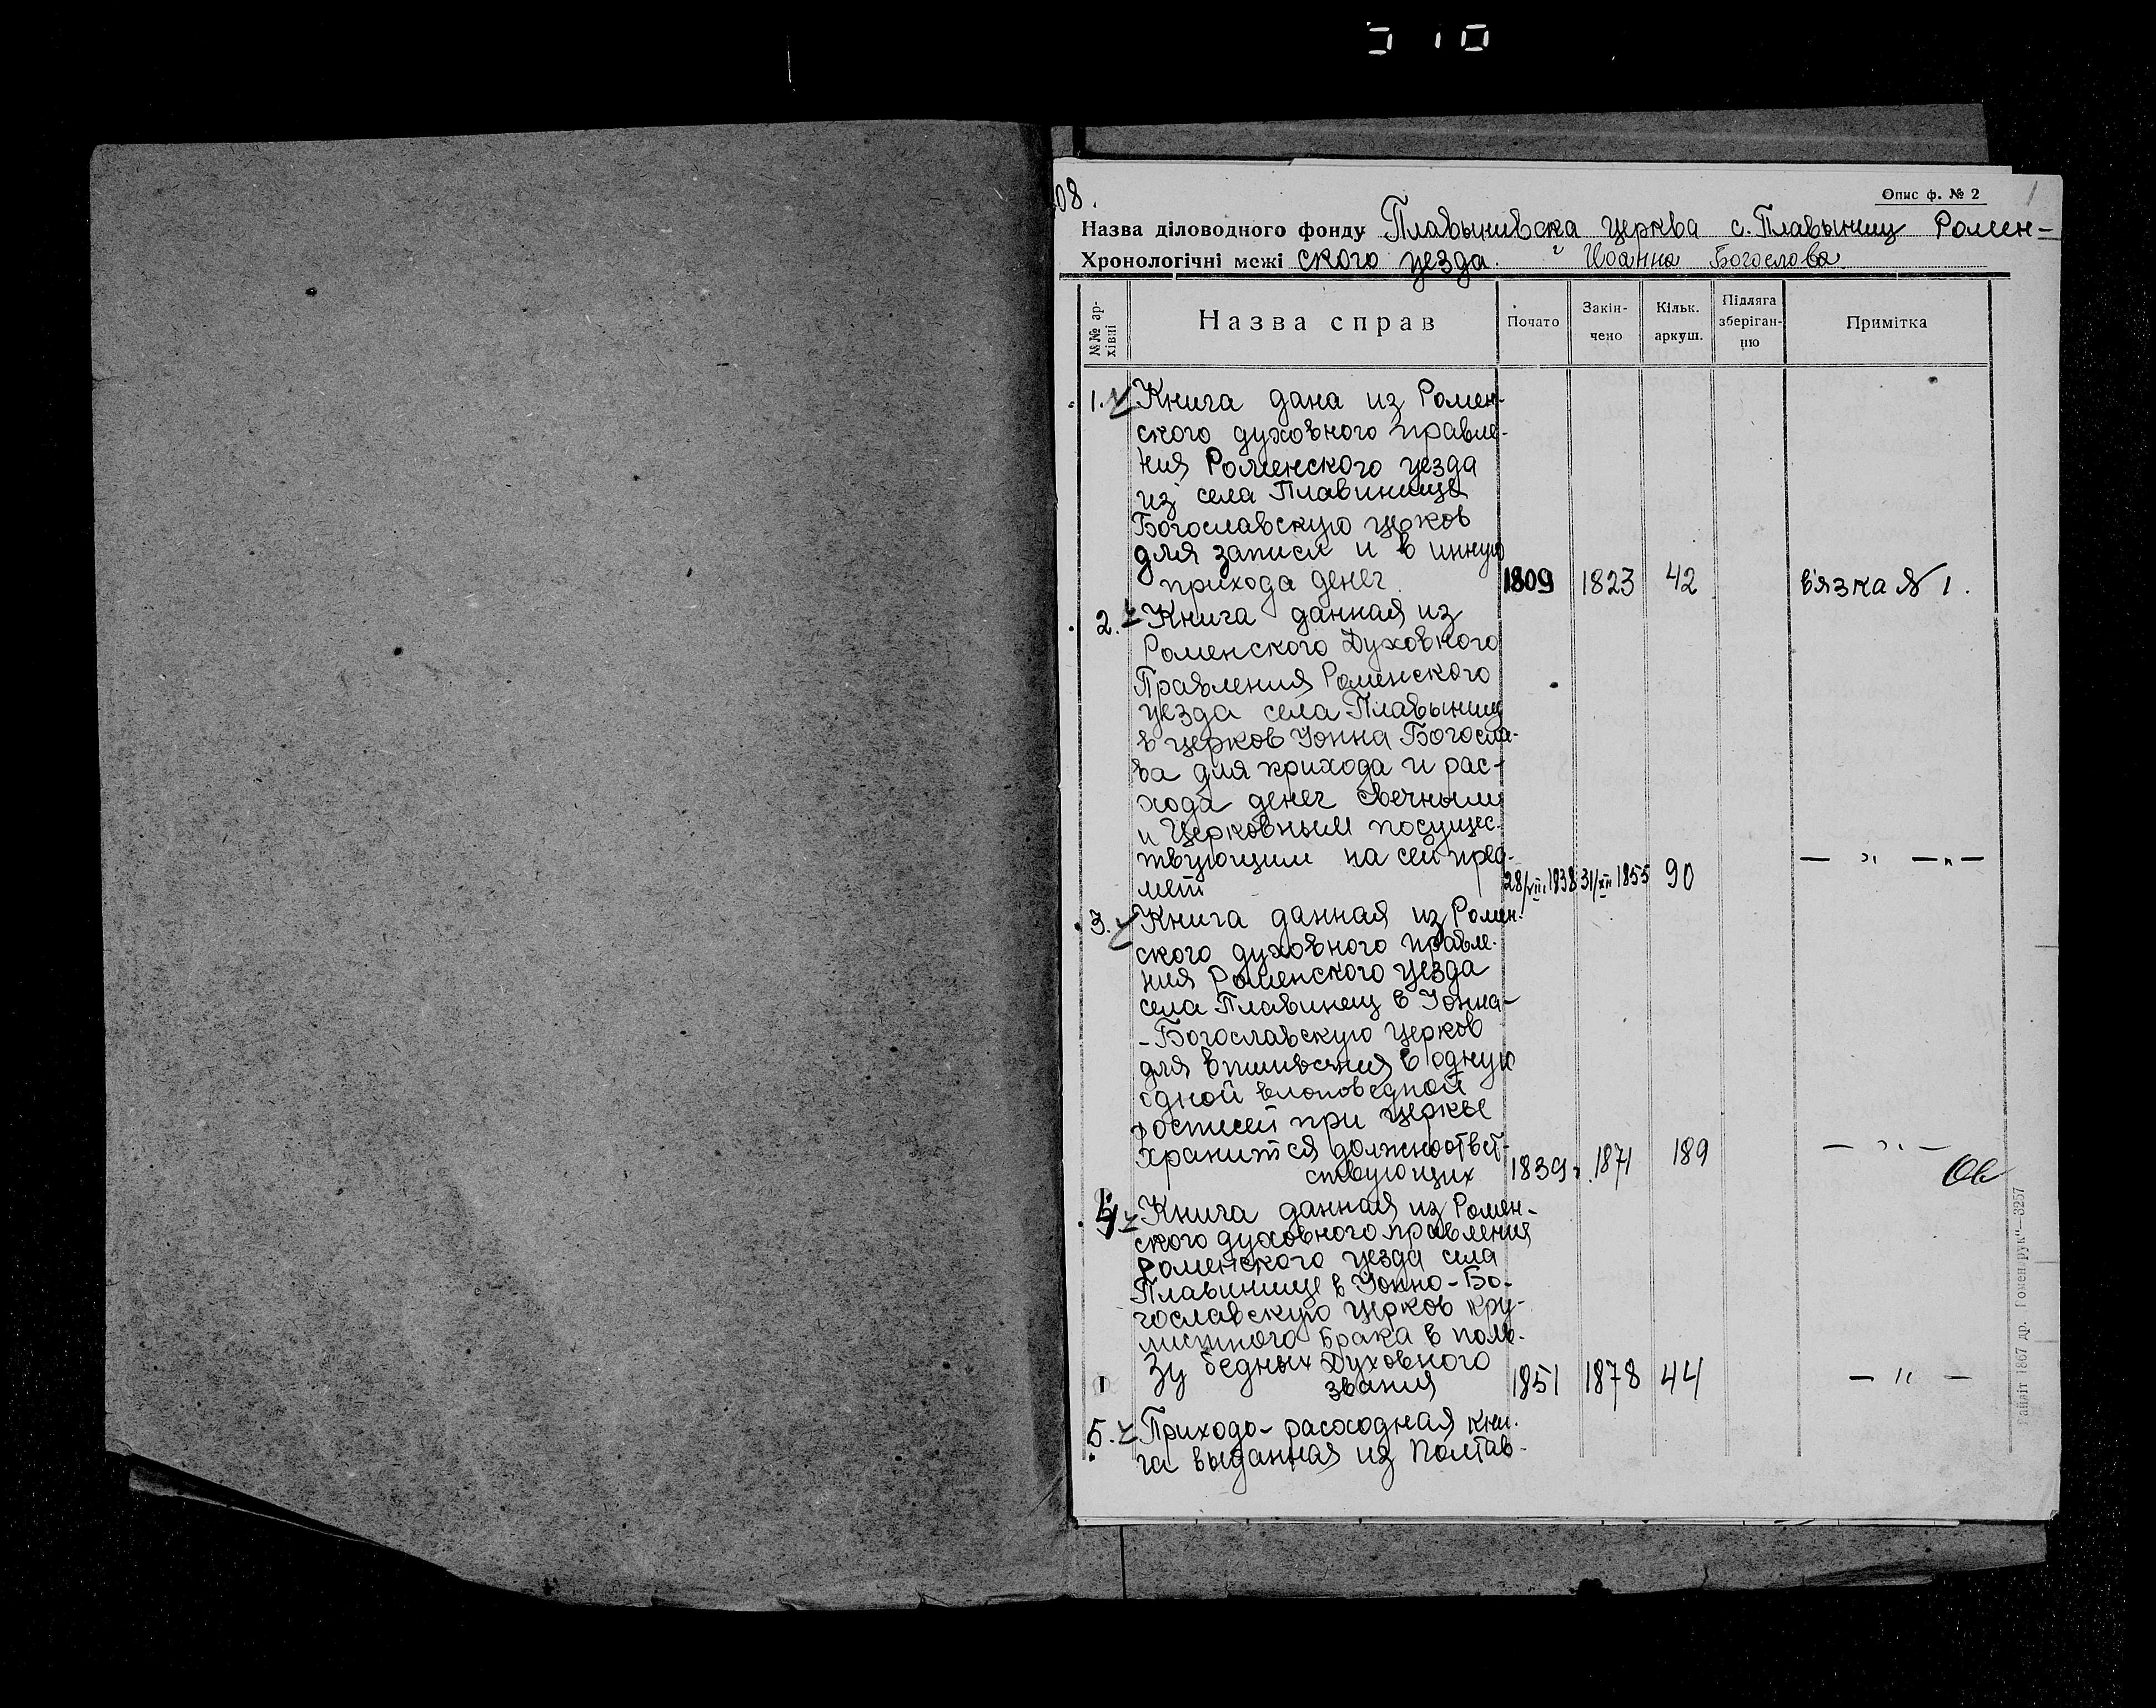 08.
Опис ф. № 2
1
Назва діловодного фонду Плавынивска церква с. Плавыниц Ромен-
Хронологічні межі ского уезда. Иоанна Богослова
№№ архівні
Назва справ
Почато
Закін-
чено
Кільк.
аркуш.
Підляга
зберіган-
ню
Примітка
1. Книга дана из Ромен-
ского духовного правле-
ния Роменского уезда
из села Плавинище
Богославскую церков
для записи и в инную
прихода денег 1809 1823 42 в'язка № 1.
2. Книга данная из
Роменского Духовного
Правления Роменского
уезда села Плавыниц
в церков Иоина Богосла-
ва для прихода и рас-
хода денег свечными
и Церковным посущес-
твующим на сей пред-
мет 28/VII 1838 31/XII 1855 90 — " — " —
3. Книга данная из Ромен-
ского духовного правле-
ния Роменского уезда
села Плавинец в Иоина-
-Богославскую церков
для в одную
одной
при церкве
хранится должноответ-
ствующих 1839 г. 1871 189 — " —
4. Книга данная из Ромен-
ского духовного правления
Роменского уезда села
Плавинище в Иоино-Бо-
гославскую церков кру-
жистного брака в поль-
зу бедных Духовного
звания 1851 1878 44 — " —
5. Приходо-расходная кни-
га выданная из Полтав-
айліт 1867 др. Ромен рук"—3257